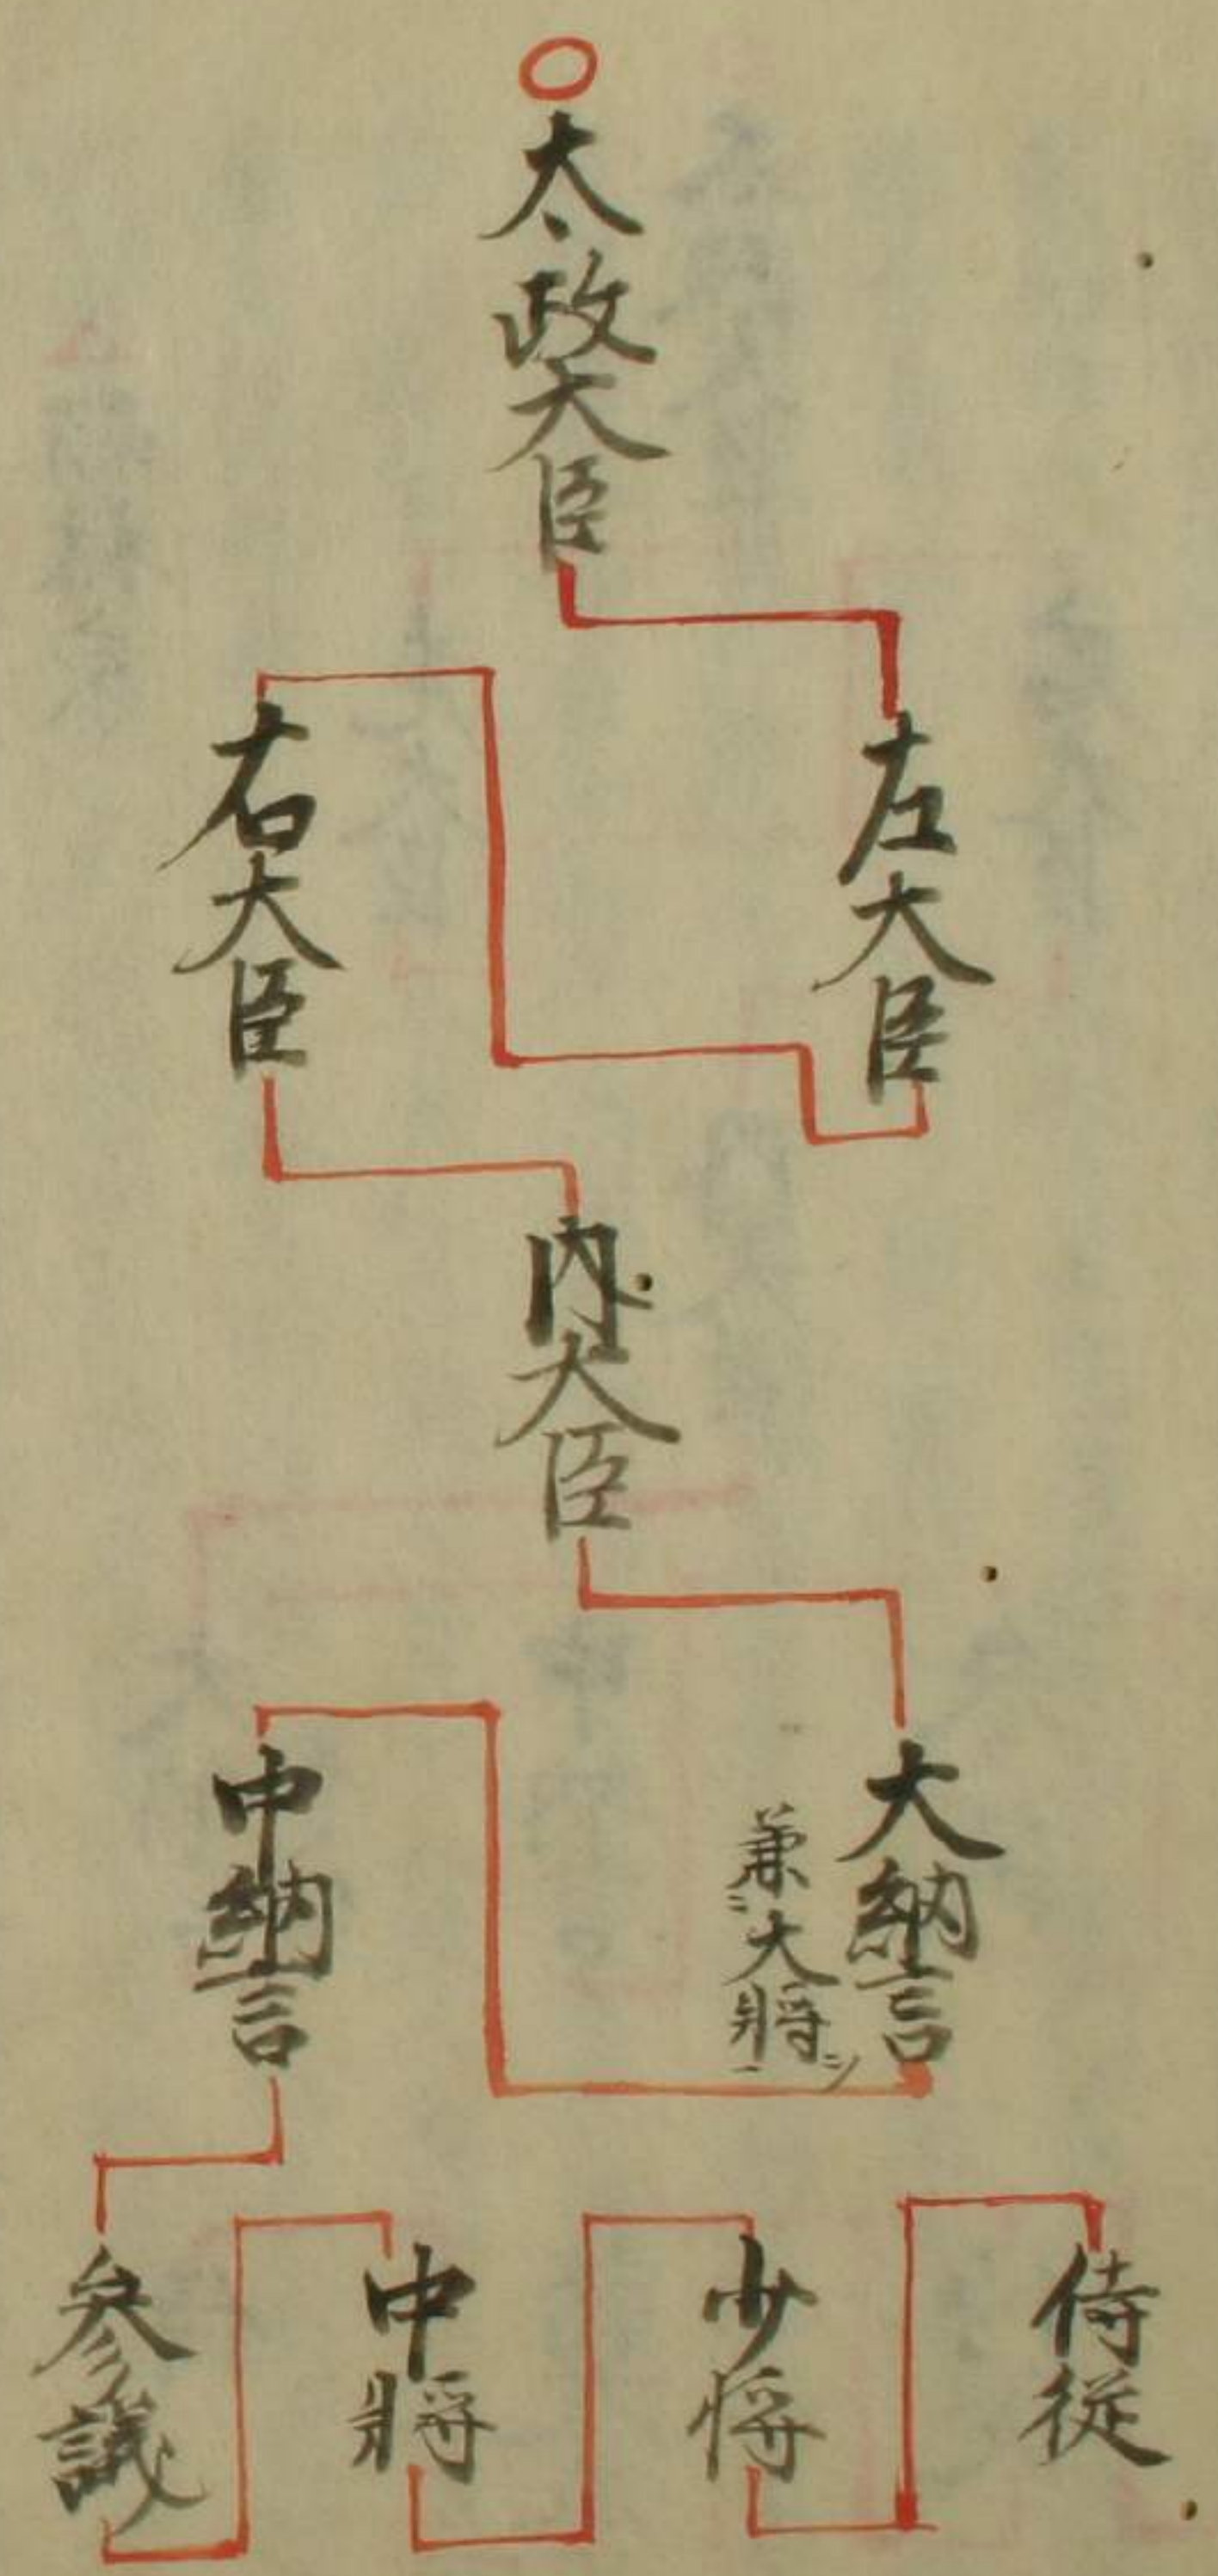 太政大臣
左大臣
右大臣
内大臣
大納言
兼ニ大将一シ
中納言
侍従
少将
中将
参議